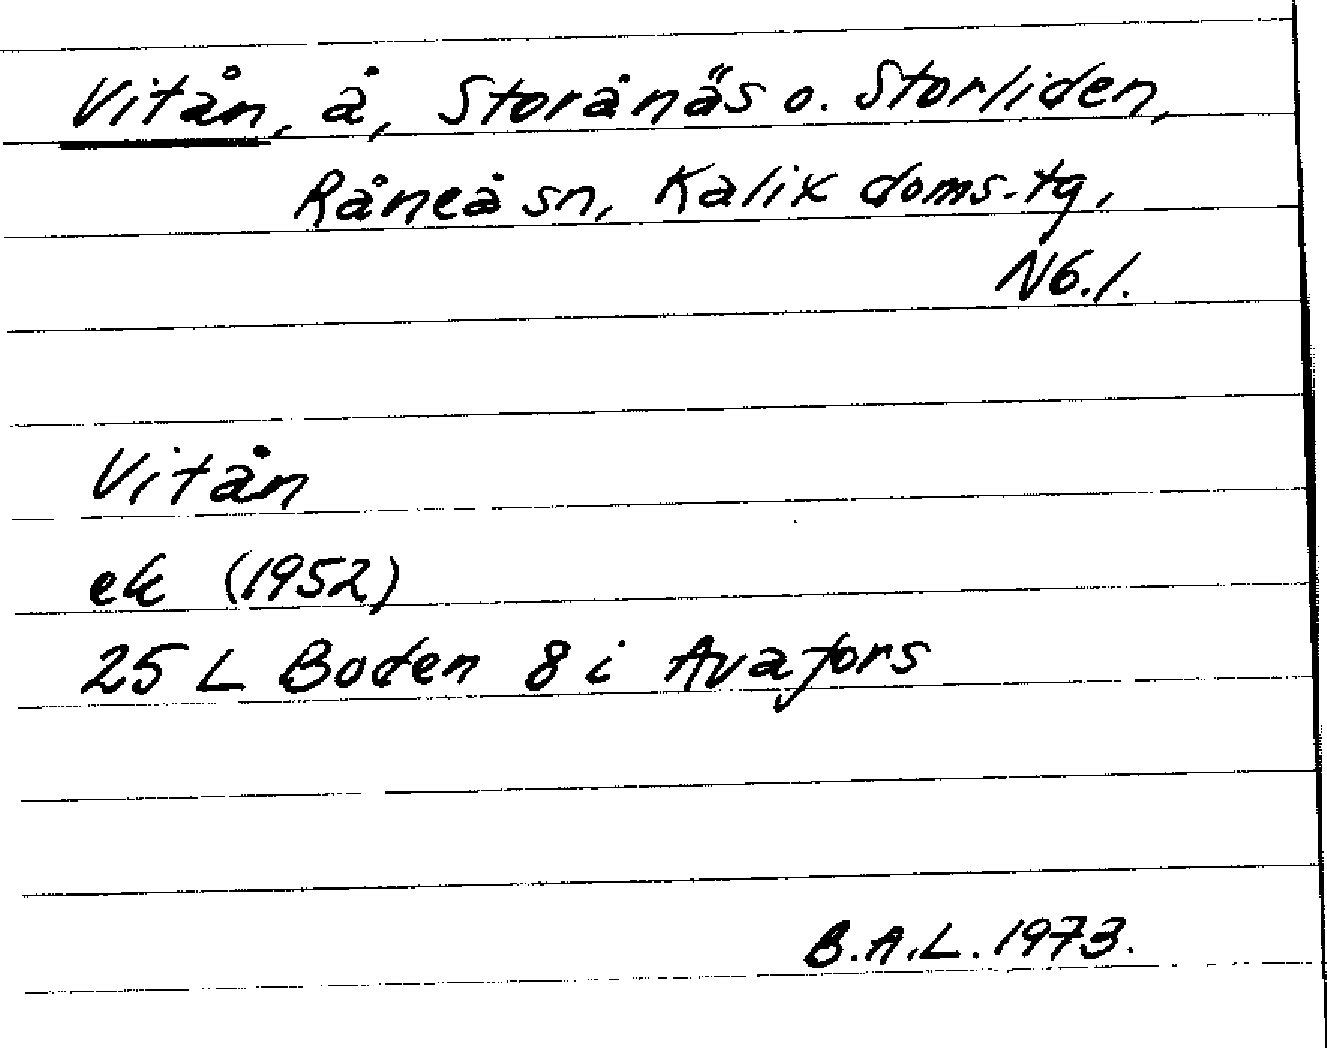 Vitån, å, Storånäs o. Storliden,
Råneå sn, Kalix doms.-tg,
Nb.l.
Vitån
ek (1952)
25 L Boden 8 i Avafors
B.A.L. 1973.